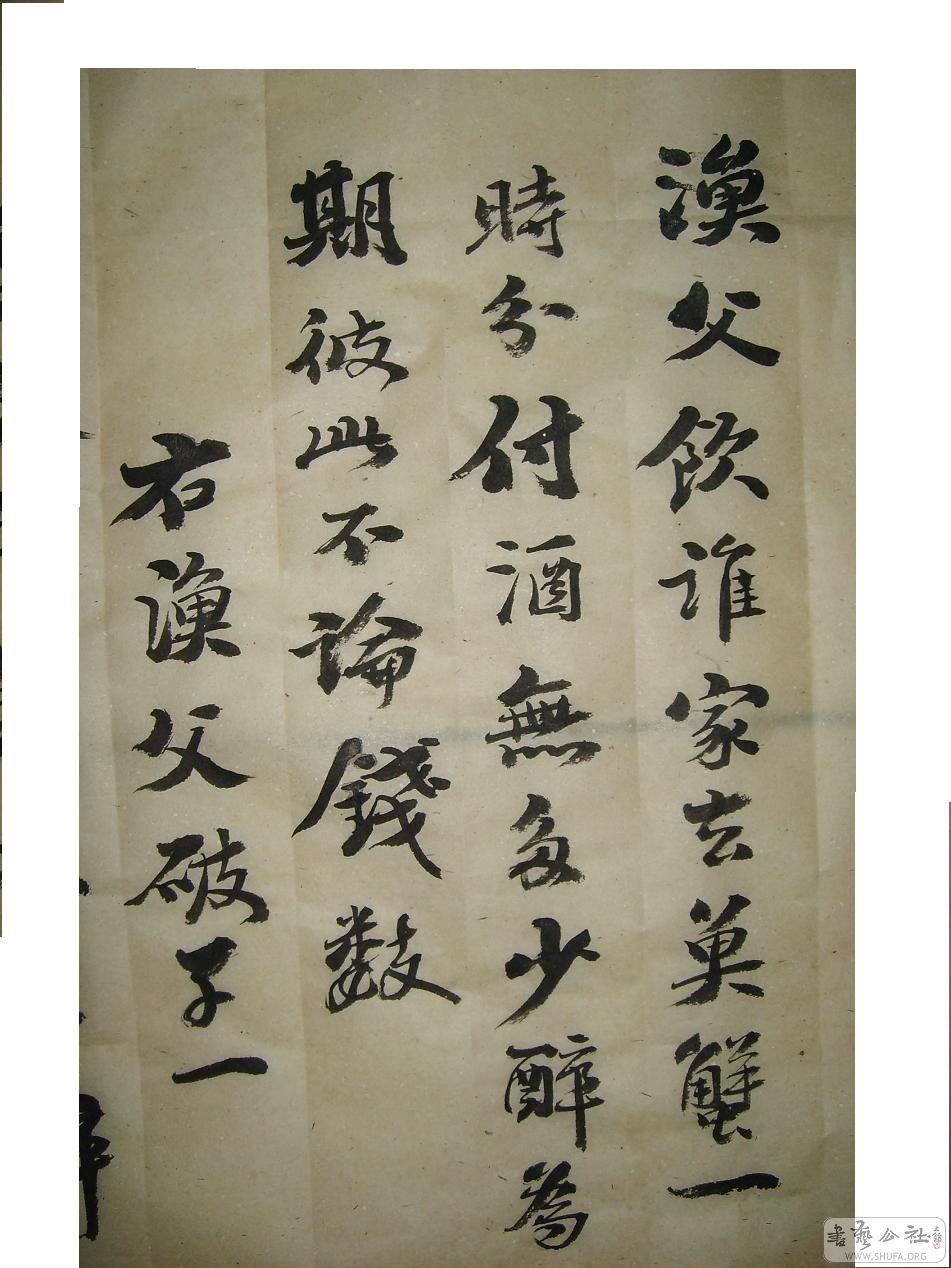 漁父飲誰家去魚蟹一
時分付酒無多少醉為
期彼此不論錢數
右漁父破子一
書藝公社
WWW.SHUFA.ORG